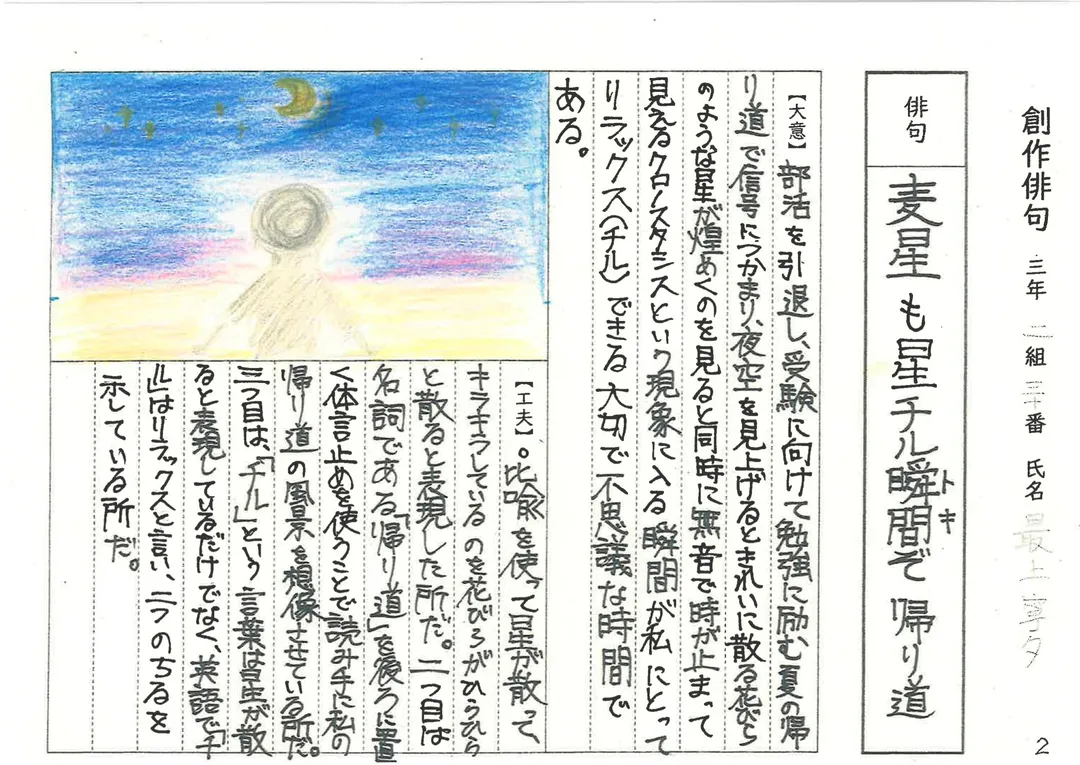 創作俳句 三年 二組 三十番 氏名 最上 寧夕
俳句
麦星も星チル瞬間ぞ帰り道
トキ
【大意】部活を引退し、受験に向けて勉強に励む夏の帰
り道で信号につかまり、夜空を見上げるときれいに散る花びら
のような星が煌めくのを見ると同時に無音で時が止まって
見えるクロノスタシスという現象に入る瞬間が私にとって
リラックス(チル)できる大切で不思議な時間で
ある。
【工夫】。比喩を使って星が散って、
キラキラしているのを花びらがひらひら
と散ると表現した所だ。二つ目は
名詞である「帰り道」を後ろに置
く体言止めを使うことで読み手に私の
帰り道の風景を想像させている所だ。
三つ目は、「チル」という言葉は星が散
ると表現しているだけでなく、英語で「チ
ル」はリラックスと言い、二つのちるを
示している所だ。
2